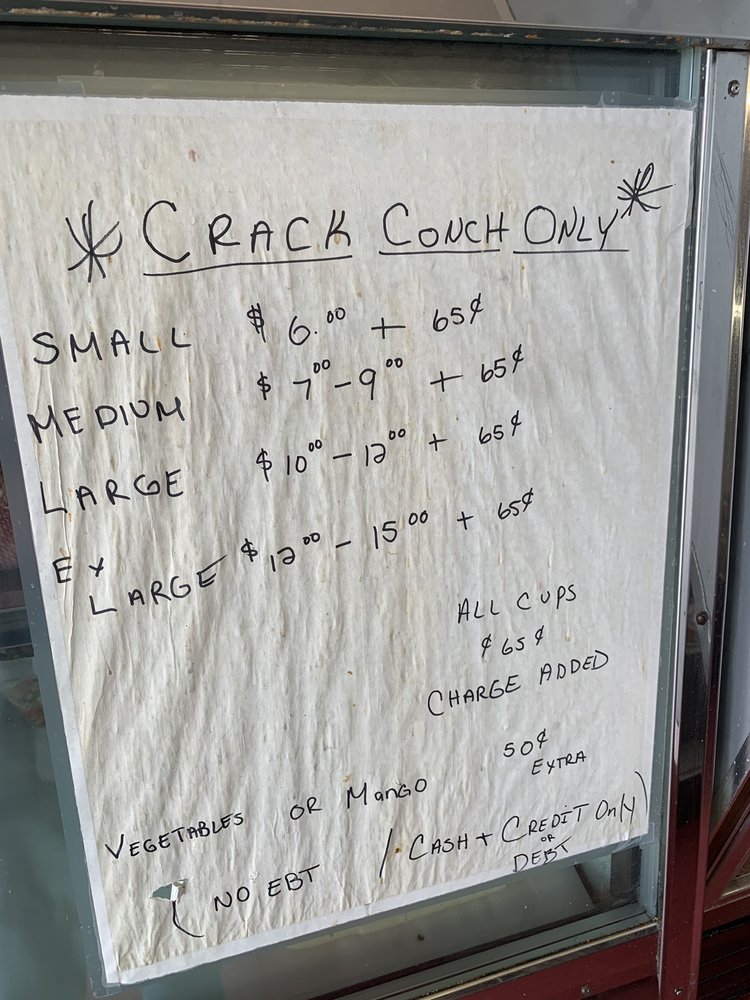 * CRACK CONCH ONLY *
SMALL $ 6.00 + 65¢
MEDIUM $ 7.00 - 9.00 + 65¢
LARGE $ 10.00 - 12.00 + 65¢
EX LARGE $ 12.00 - 15.00 + 65¢
ALL CUPS
¢ 65 ¢
CHARGE ADDED
50¢
EXTRA
VEGETABLES OR MANGO
( NO EBT / CASH + CREDIT Only )
OR
DEBT